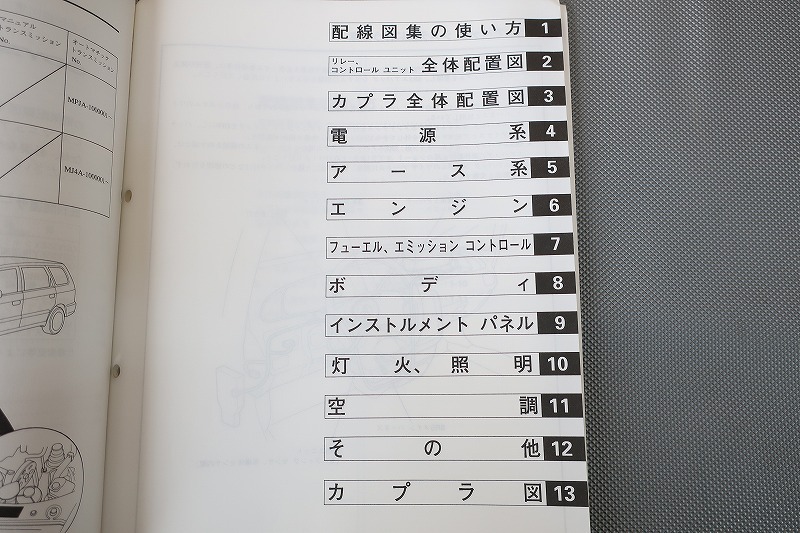 マニュアル
トランスミッション
No.
オートマチック
トランスミッション
No.
MP3A-1000001～
MJ4A-1000001～
配線図集の使い方 1
リレー、
コントロール ユニット 全体配置図 2
カプラ全体配置図 3
電源系 4
アース系 5
エンジン 6
フューエル、エミッション コントロール 7
ボディ 8
インストルメント パネル 9
灯火、照明 10
空調 11
その他 12
カプラ図 13